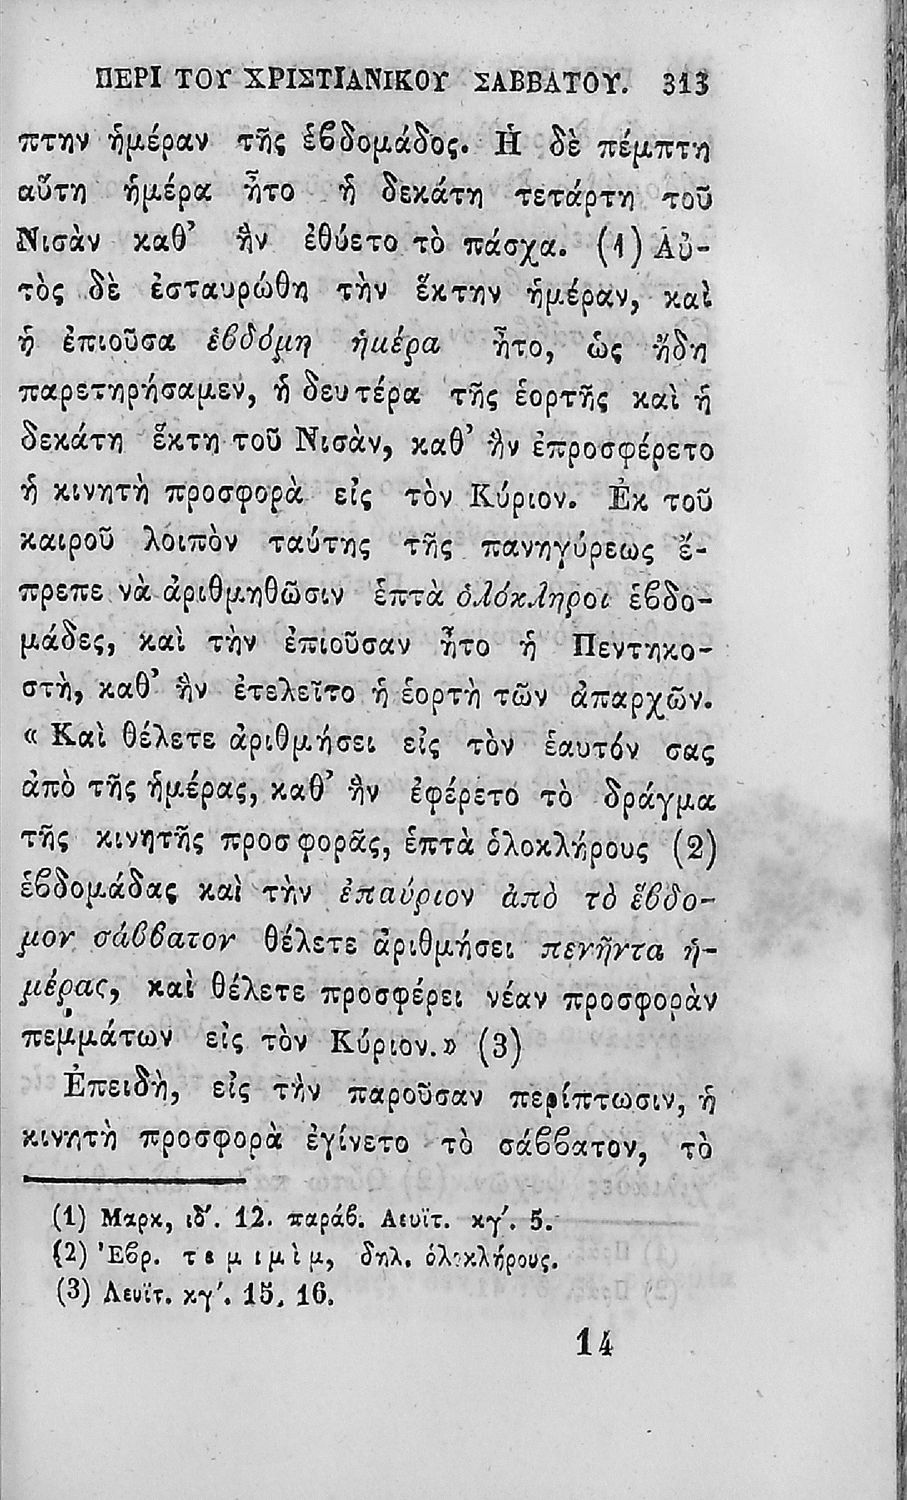 ΠΕΡΙ ΤΟΥ ΧΡΙΣΤΙΑΝΙΚΟΥ ΣΑΒΒΑΤΟΥ. 313
πτην ἡμέραν τῆς ἑβδομάδος. Ἡ δὲ πέμπτη
αὕτη ἡμέρα ἦτο ἡ δεκάτη τετάρτη τοῦ
Νισὰν καθ’ ἣν ἐθύετο τὸ πάσχα. (1) Αὐ-
τὸς δὲ ἐσταυρώθη τὴν ἕκτην ἡμέραν, καὶ
ἡ ἐπιοῦσα ἑβδόμη ἡμέρα ἦτο, ὡς ἤδη
παρετηρήσαμεν, ἡ δευτέρα τῆς ἑορτῆς καὶ ἡ
δεκάτη ἕκτη τοῦ Νισὰν, καθ’ ἣν ἐπροσφέρετο
ἡ κινητὴ προσφορὰ εἰς τὸν Κύριον. Ἐκ τοῦ
καιροῦ λοιπὸν ταύτης τῆς πανηγύρεως ἔ-
πρεπε νὰ ἀριθμηθῶσιν ἑπτὰ ὁλόκληροι ἑβδο-
μάδες, καὶ τὴν ἐπιοῦσαν ἦτο ἡ Πεντηκο-
στὴ, καθ’ ἣν ἐτελεῖτο ἡ ἑορτὴ τῶν ἀπαρχῶν.
« Καὶ θέλετε ἀριθμήσει εἰς τὸν ἑαυτόν σας
ἀπὸ τῆς ἡμέρας, καθ’ ἣν ἐφέρετο τὸ δράγμα
τῆς κινητῆς προσφορᾶς, ἑπτὰ ὁλοκλήρους (2)
ἑβδομάδας καὶ τὴν ἐπαύριον ἀπὸ τὸ ἕβδο-
μον σάββατον θέλετε ἀριθμήσει πενῆντα ἡ-
μέρας, καὶ θέλετε προσφέρει νέαν προσφορὰν
πεμμάτων εἰς τὸν Κύριον.» (3)
Ἐπειδὴ, εἰς τὴν παροῦσαν περίπτωσιν, ἡ
κινητὴ προσφορὰ ἐγίνετο τὸ σάββατον, τὸ
(1) Μαρκ, ιδ′. 12. παράβ. Λευϊτ. κγ′. 5.
(2) Ἑβρ. τεμιμὶμ, δηλ. ὁλοκλήρους.
(3) Λευϊτ. κγ′. 15, 16.
14